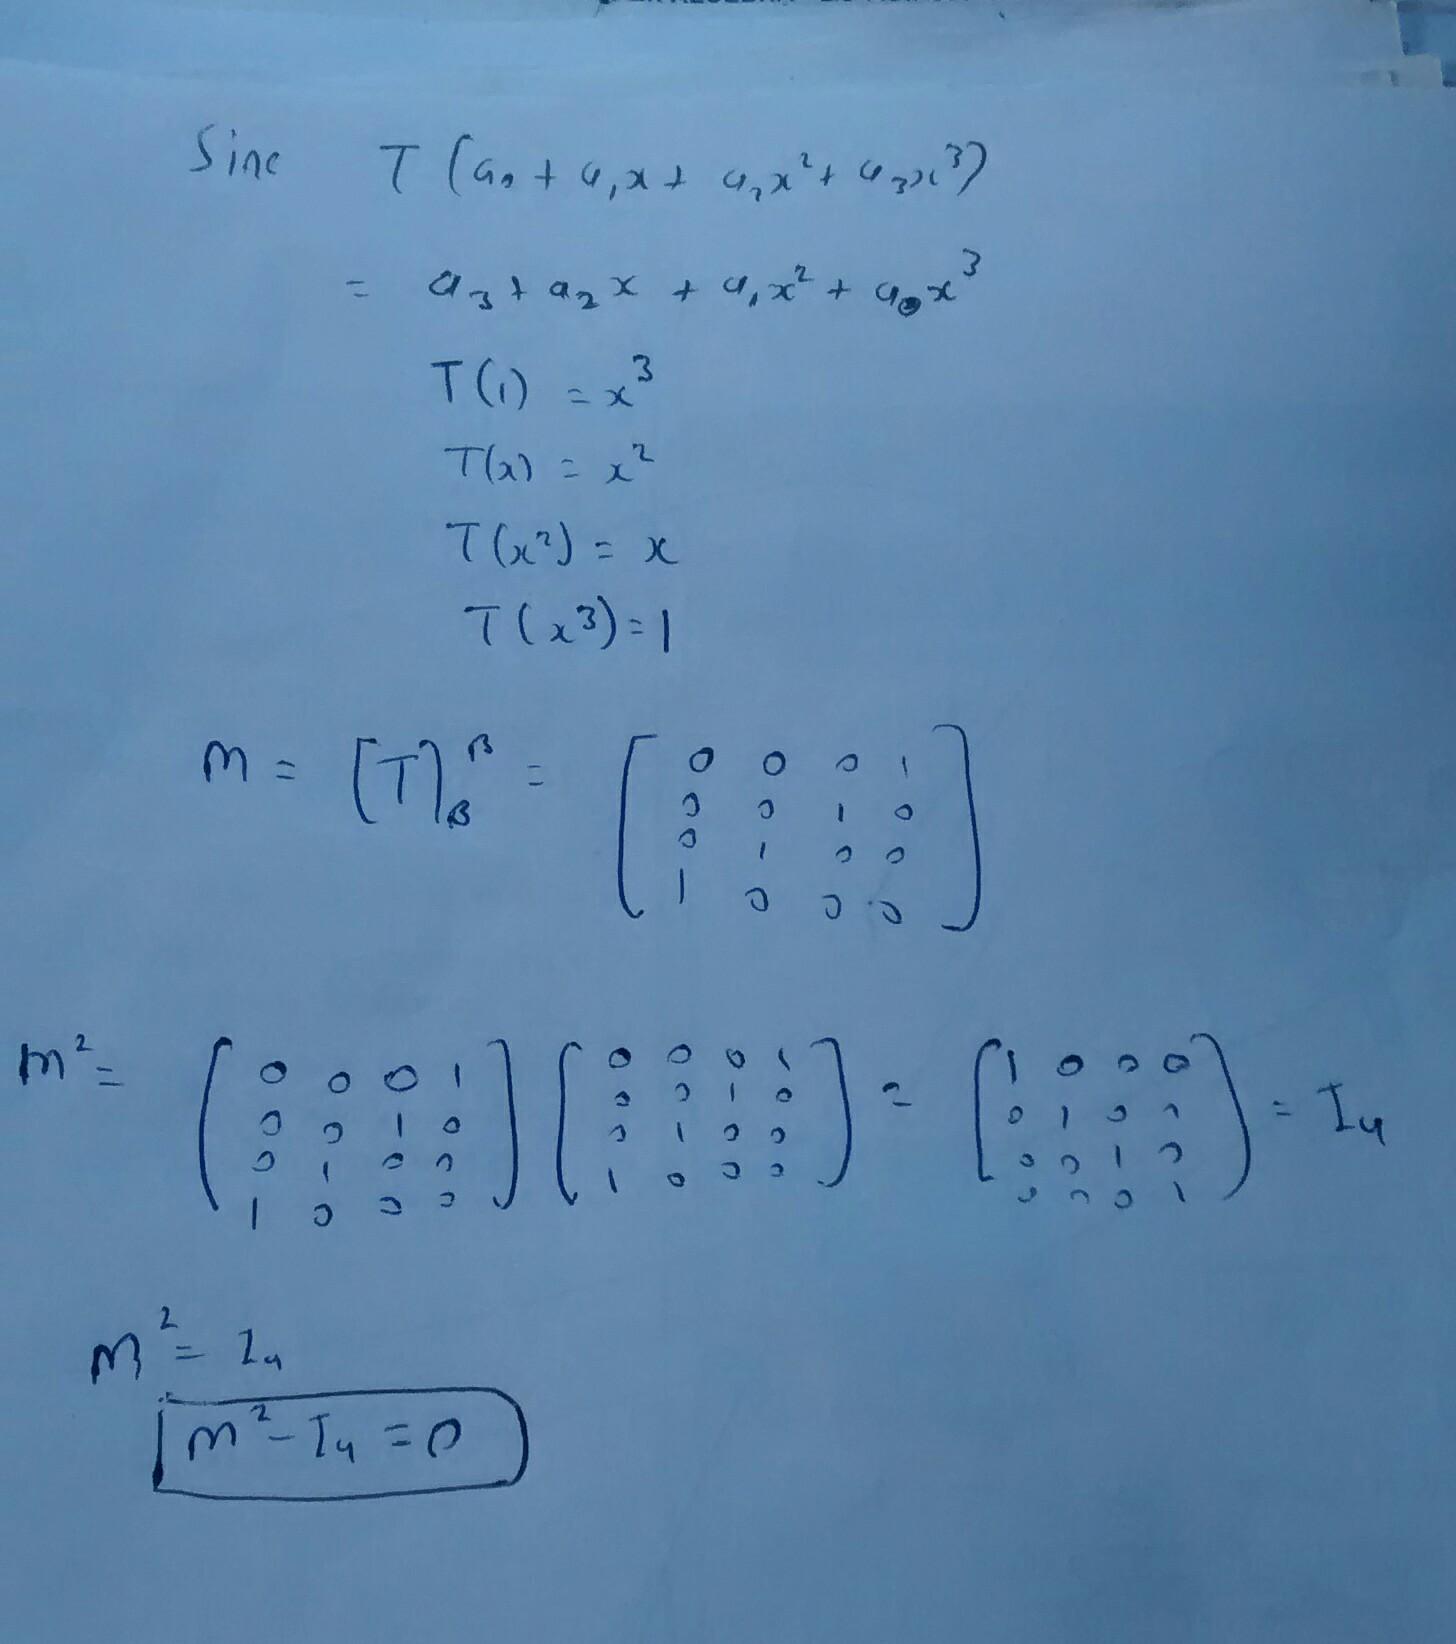 Sinc T (a₀ + a₁x + a₂x² + a₃x³)
= a₃ + a₂x + a₁x² + a₀x³
T(1) = x³
T(x) = x²
T(x²) = x
T(x³) = 1
m = [T]ᵝᵦ = [
0 0 0 1
0 0 1 0
0 1 0 0
1 0 0 0
]
m² = [
0 0 0 1
0 0 1 0
0 1 0 0
1 0 0 0
] [
0 0 0 1
0 0 1 0
0 1 0 0
1 0 0 0
] = [
1 0 0 0
0 1 0 0
0 0 1 0
0 0 0 1
] = I₄
m² = I₄
m² - I₄ = 0